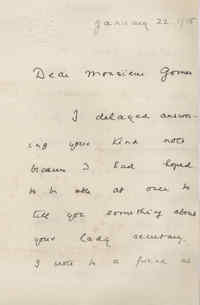 January 22.
Dear Monsieur
I delayed answer-
ing your kind note
because I had hoped
to be able at once to
tell you something about
your lady secretary.
I wrote to a friend at